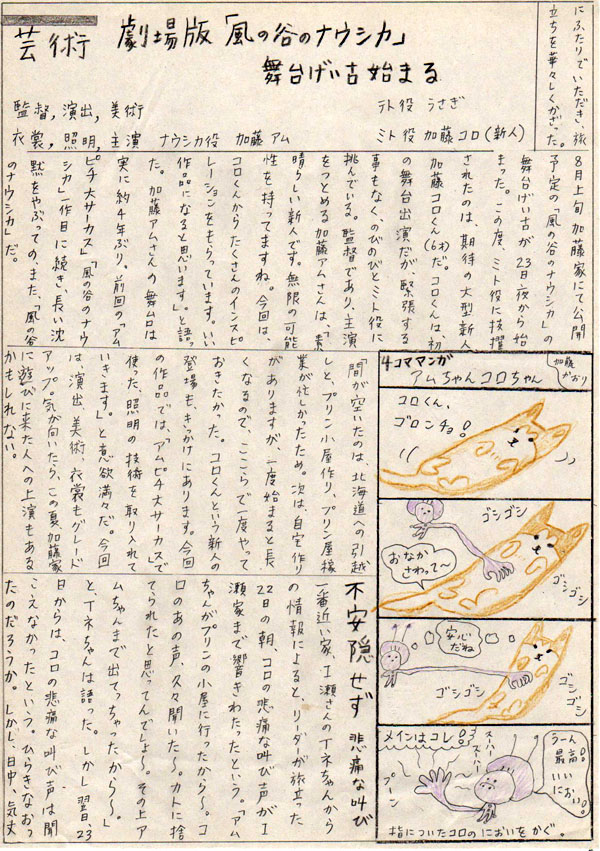 にふたりでいただき、旅
立ちを華々しくかざった。
芸術 劇場版「風の谷のナウシカ」
舞台げいこ始まる
監督,演出,美術
衣裳,照明,主演 ナウシカ役 加藤アム
テト役 うさぎ
ミト役 加藤コロ(新人)
8月上旬加藤家にて公開
予定の「風の谷のナウシカ」の
舞台げいこが23日夜から始
まった。この度、ミト役に抜擢
されたのは、期待の大型新人
加藤コロくん(6才)だ。コロくんは、初
の舞台出演だが、緊張する
事もなく、のびのびとミト役に
挑んでいる。監督であり、主演
をつとめる加藤アムさんは、「素
晴らしい新人です。無限の可能
性を持ってますね。今回は、
コロくんからたくさんのインスピ
レーションをもらっています。いい
作品になると思います」と語っ
た。加藤アムさんの舞台は
実に約4年ぶり、前回の「アム
ピチ大サーカス」「風の谷のナウ
シカ」一作目に続き、長い沈
黙をやぶっての、また、「風の谷
のナウシカ」だ。
「間が空いたのは、北海道への引越
しと、プリン小屋作り、プリン屋稼
業が忙しかったため。次は、自宅作り
がありますが、一度始まると長
くなるので、ここらで一度やって
おきたかった。コロくんという新人の
登場も、きっかけにあります。今回
の作品では、「アムピチ大サーカス」で
使った、照明の技術を取り入れて
いきます。」と意欲満々だ。今回
は、演出、美術、衣裳もグレード
アップ。気が向いたら、この夏加藤家
に遊びに来た人への上演もある
かもしれない。
4コママンガ
アムちゃんコロちゃん
加藤かおり
コロくん、
ゴロンチョ!
ゴシゴシ
おなか
さわって〜
ゴシゴシ
安心
だね
ゴシゴシ
ゴシゴシ
メインはコレ!
スーハー
スーハー
うーん
最高!
いい
におい。
プーン
指についたコロのにおいをかぐ。
不安隠せず 悲痛な叫び
一番近い家、I瀬さんのTネちゃんから
の情報によると、リーダーが旅立った
22日の朝、コロの悲痛な叫び声がI
瀬家まで響きわたったという。「アム
ちゃんがプリンの小屋に行ったから〜。コ
ロのあの声、久々聞いた〜。カトに捨
てられたと思ってんでしょ〜。その上ア
ムちゃんまで出てっちゃったから〜。」
と、Tネちゃんは語った。しかし、翌日、23
日からは、コロの悲痛な叫び声は聞
こえなかったという。ひらきなおっ
たのだろうか。しかし、日中、気丈